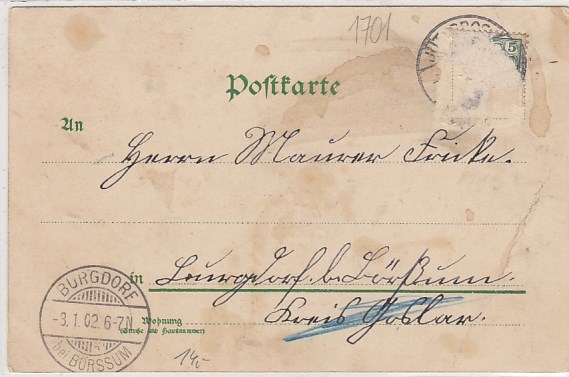 1701
5
Postkarte
An
Herrn Maurer Fricke.
in Burgdorf b. Börßum.
Kreis Goslar.
Wohnung
(Straße und Hausnummer)
BURGDORF
-3.1.02.6-7N
bei BÖRSSUM
14,-